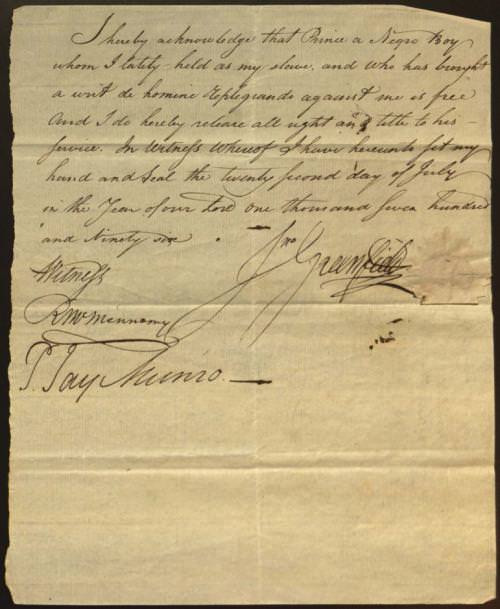 I hereby acknowledge that Prince a Negro Boy
whom I lately held as my slave, and who has brought
a writ de homine Replegiando against me is free
And I do hereby release all right and title to his
service. In Witness Whereof I have hereunto set my
hand and Seal the twenty second day of July
in the Year of our Lord one thousand seven hundred
and Ninety six
Jno Greenfield
Witness
P. Jay Munro.